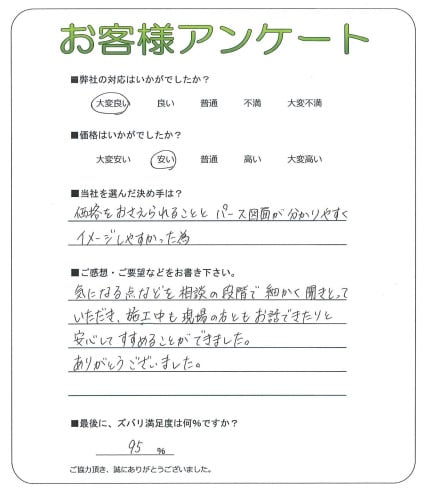 お客様アンケート
■弊社の対応はいかがでしたか？
大変良い 良い 普通 不満 大変不満
■価格はいかがでしたか？
大変安い 安い 普通 高い 大変高い
■当社を選んだ決め手は？
価格をおさえられることと パース図面が分かりやすく
イメージしやすかった為
■ご感想・ご要望などをお書き下さい。
気になる点などを相談の段階で細かく聞きとって
いただき、施工中も現場の方ともお話できたりと
安心してすすめることができました。
ありがとうございました。
■最後に、ズバリ満足度は何％ですか？
95 ％
ご協力頂き、誠にありがとうございました。